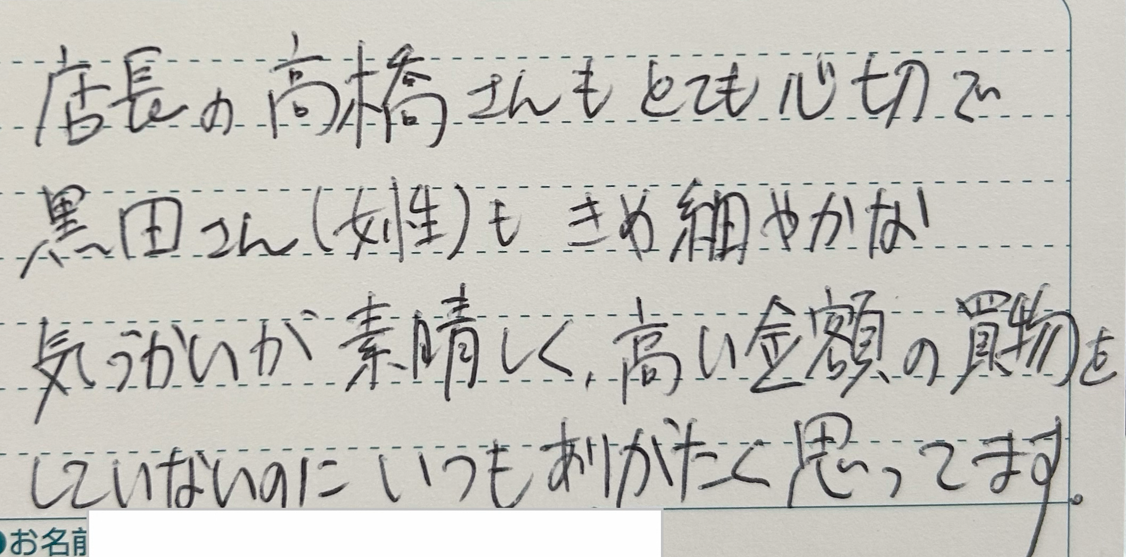 店長の高橋さんもとても心切で
黒田さん(女性)もきめ細やかな
気づかいが素晴しく、高い金額の買物を
していないのにいつもありがたく思ってます。
●お名前